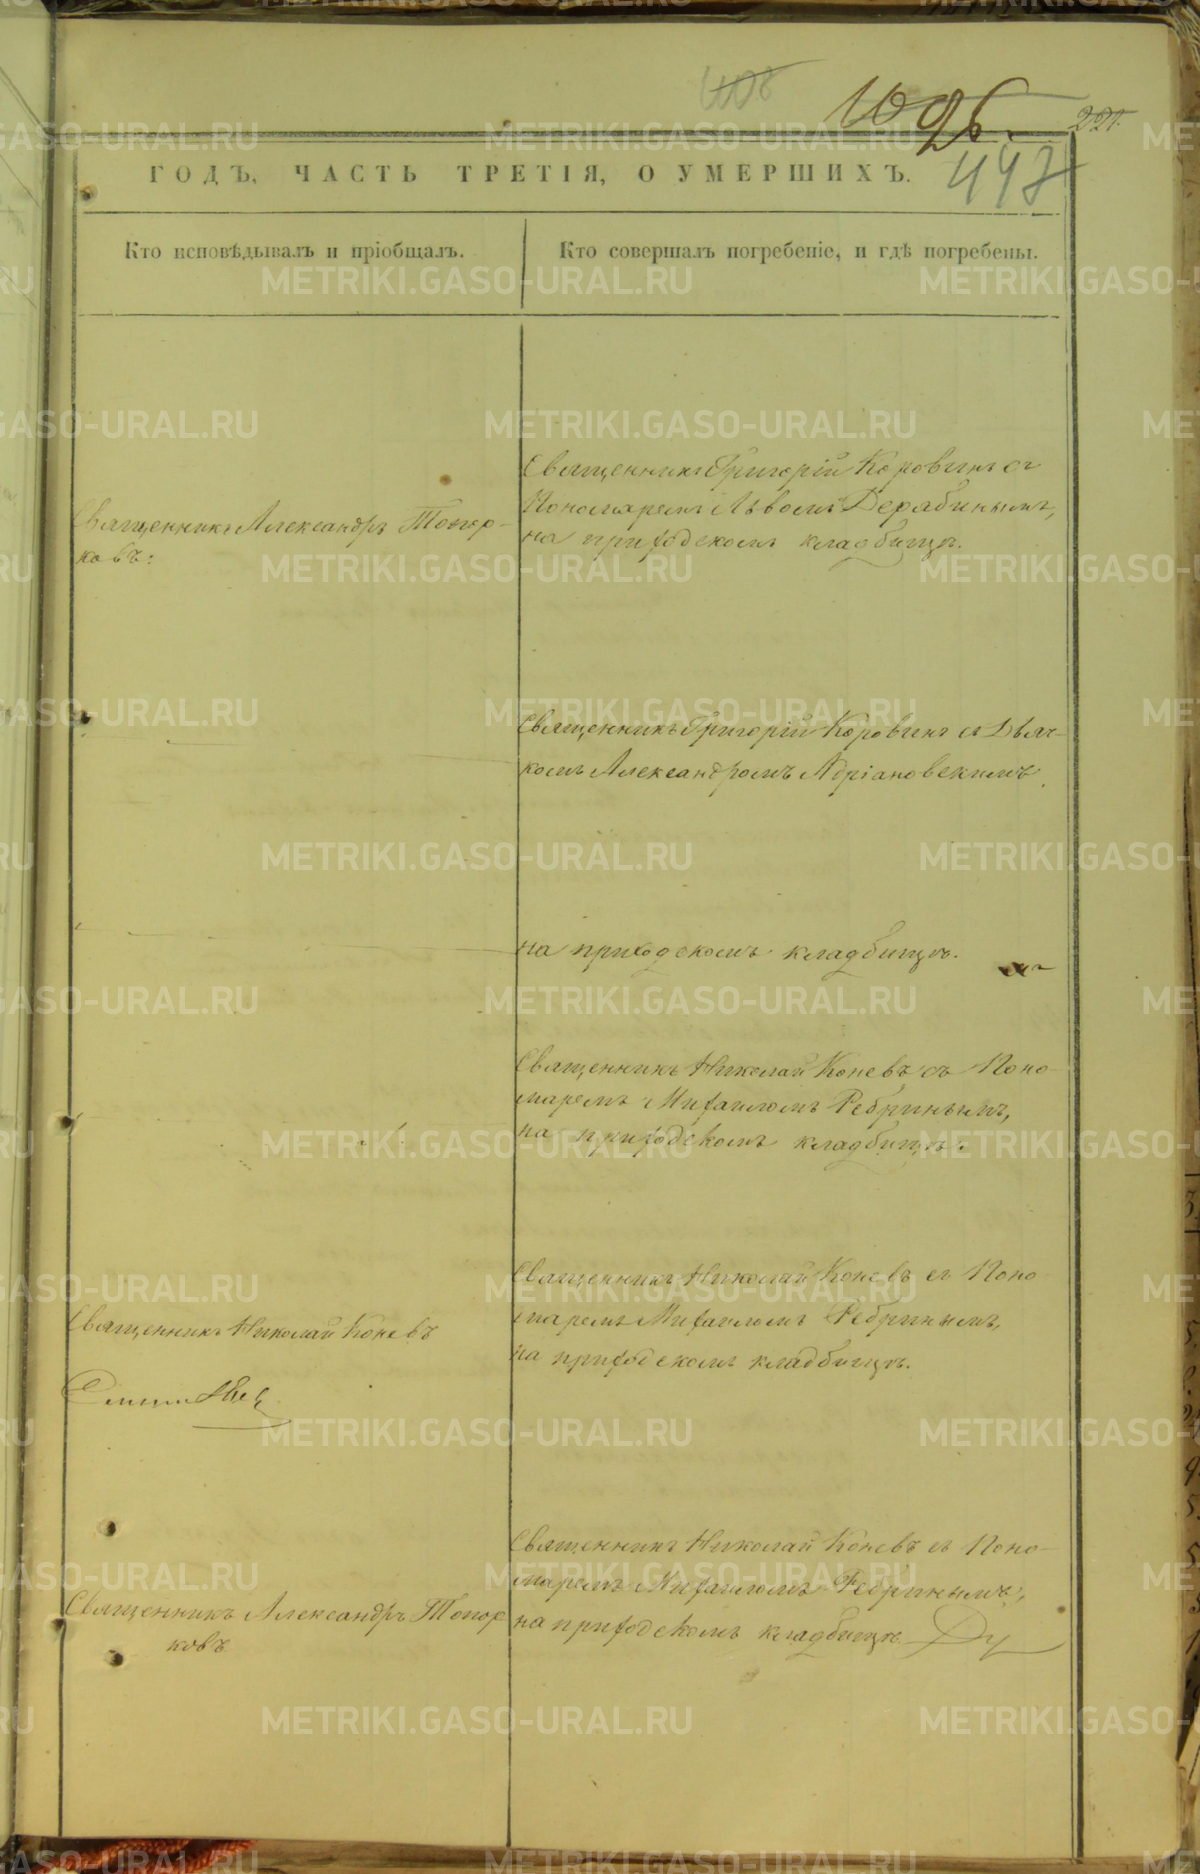 1096.
221.
447
ГОДЪ, ЧАСТЬ ТРЕТІЯ, О УМЕРШИХЪ.
Кто исповѣдывалъ и пріобщалъ.
Кто совершалъ погребеніе, и гдѣ погребены.
Священникъ Александръ Топор-
ковъ:
Священникъ Григорій Коровинъ съ
Пономаремъ Львомъ Дерябинымъ,
на приходскомъ кладбищѣ.
Священникъ Григорій Коровинъ съ Дьяч-
комъ Александромъ Адріановскимъ
на приходскомъ кладбищѣ.
Священникъ Николай Коневъ съ Поно-
маремъ Михаиломъ Ребринымъ,
на приходскомъ кладбищѣ.
Священникъ Николай Коневъ
Священникъ Николай Коневъ съ Поно-
маремъ Михаиломъ Ребринымъ,
на приходскомъ кладбищѣ.
Священникъ Александръ Топор
ковъ
Священникъ Николай Коневъ съ Поно-
маремъ Михаиломъ Ребринымъ,
на приходскомъ кладбищѣ.
METRIKI.GASO-URAL.RU